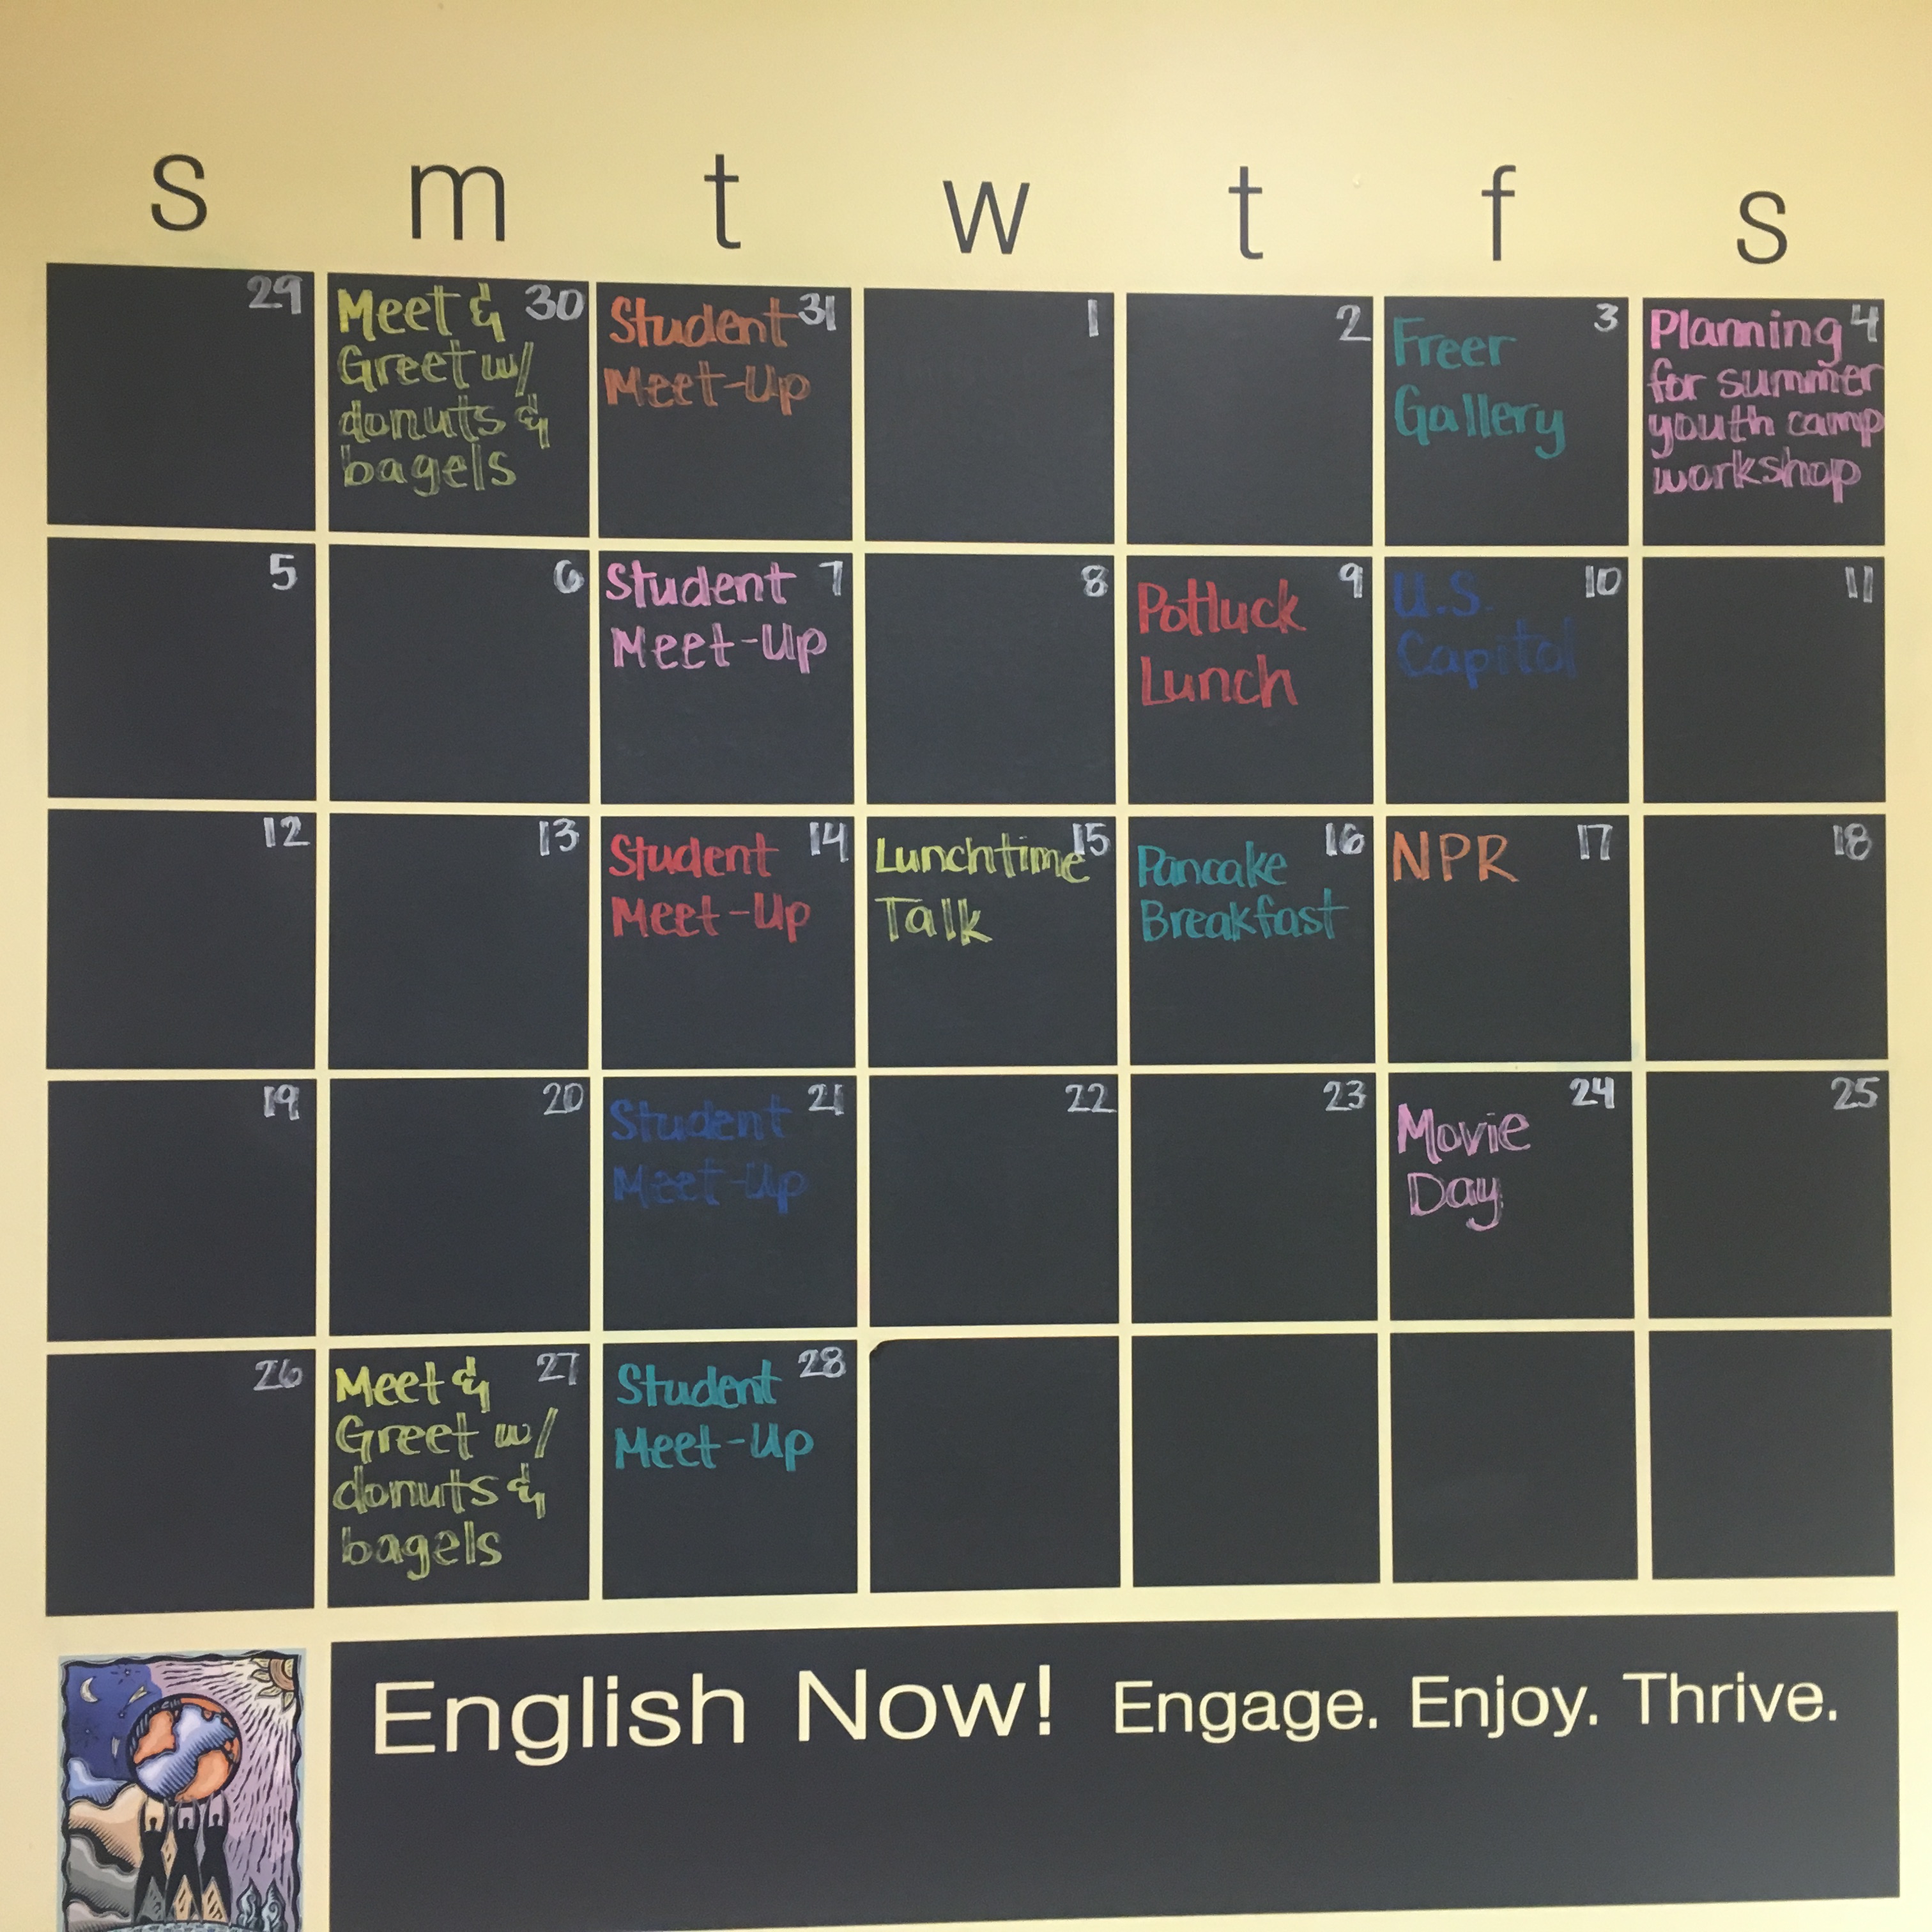 s m t w t f s
29
Meet & 30
Greet w/
donuts &
bagels
Student 31
Meet-Up
1
2
3
Freer
Gallery
Planning 4
for summer
youth camp
workshop
5
6
Student 7
Meet-Up
8
9
Potluck
Lunch
U.S. 10
Capitol
11
12
13
Student 14
Meet-Up
Lunchtime 15
Talk
16
Pancake
Breakfast
NPR 17
18
19
20
Student 21
Meet-Up
22
23
24
Movie
Day
25
26
Meet & 27
Greet w/
donuts &
bagels
Student 28
Meet-Up
English Now! Engage. Enjoy. Thrive.